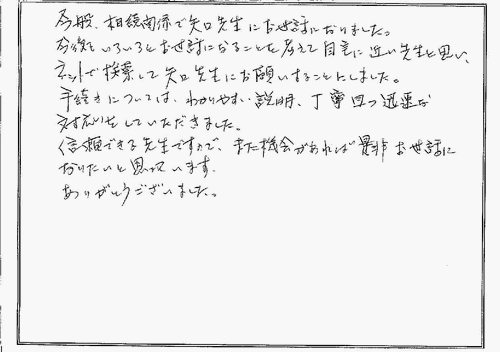 今般、相続関係で矢口先生にお世話になりました。
今後もいろいろとお世話になることを考えて自宅に近い先生と思い、
ネットで検索して矢口先生にお願いすることにしました。
手続きについては、わかりやすい説明、丁寧且つ迅速な
対応をしていただきました。
信頼できる先生ですので、また機会があれば是非お世話に
なりたいと思っています。
ありがとうございました。